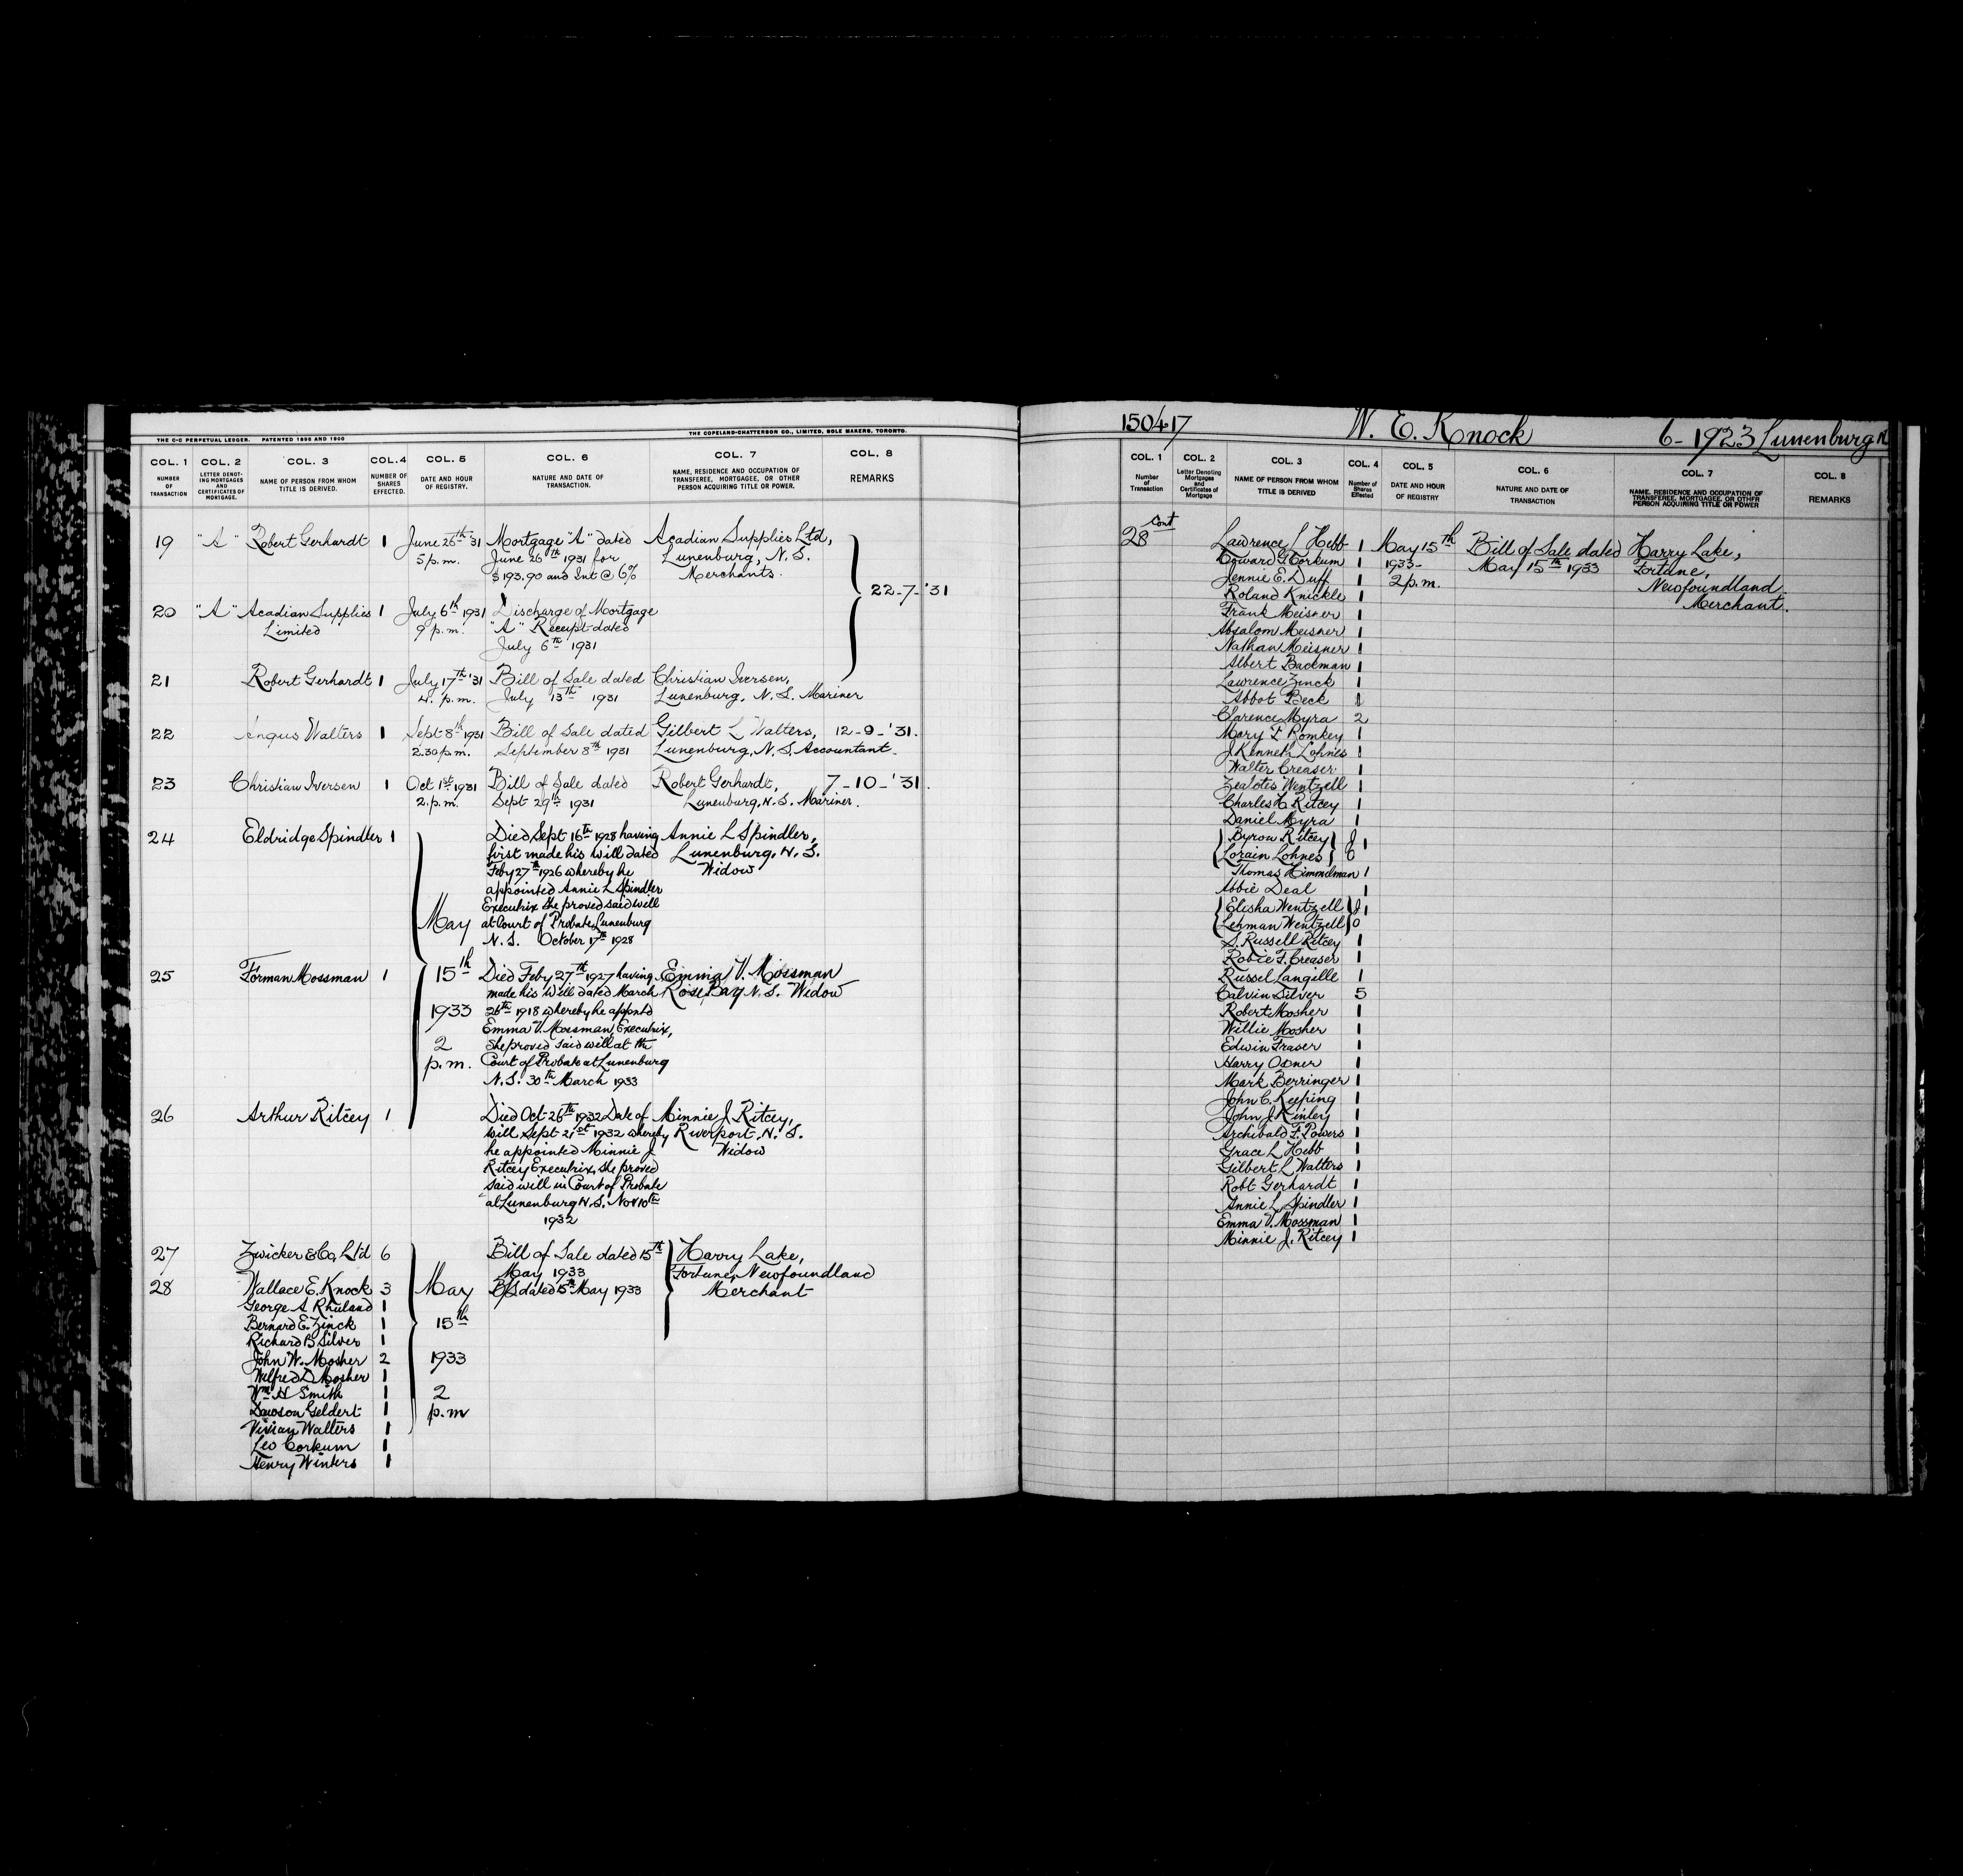 THE C-C PERPETUAL LEDGER. PATENTED 1898 AND 1900 THE COPELAND-CHATTERSON CO., LIMITED, SOLE MAKERS, TORONTO.
COL. 1 COL. 2 COL. 3 COL. 4 COL. 5 COL. 6 COL. 7 COL. 8
NUMBER OF TRANSACTION
LETTER DENOTING MORTGAGES AND CERTIFICATES OF MORTGAGE.
NAME OF PERSON FROM WHOM TITLE IS DERIVED.
NUMBER OF SHARES EFFECTED.
DATE AND HOUR OF REGISTRY.
NATURE AND DATE OF TRANSACTION.
NAME, RESIDENCE AND OCCUPATION OF TRANSFEREE, MORTGAGEE, OR OTHER PERSON ACQUIRING TITLE OR POWER.
REMARKS
19 "A" Robert Gerhardt 1 June 26th '31 Mortgage "A" dated Acadian Supplies Ltd,
5 p.m. June 26th 1931 for Lunenburg, N.S.
$193.90 and Int @ 6% Merchants.
22-7-'31
20 "A" Acadian Supplies 1 July 6th 1931 Discharge of Mortgage
Limited 9 p.m. "A" Receipt dated
July 6th 1931
21 Robert Gerhardt 1 July 17th '31 Bill of Sale dated Christian Iversen,
4. p.m. July 13th 1931 Lunenburg, N.S. Mariner
22 Angus Walters 1 Sept 8th 1931 Bill of Sale dated Gilbert L Walters, 12-9-'31.
2.30 p.m. September 8th 1931 Lunenburg, N.S. Accountant.
23 Christian Iversen 1 Oct 1st 1931 Bill of Sale dated Robert Gerhardt, 7-10-'31.
2. p.m. Sept 29th 1931 Lunenburg, N.S. Mariner.
24 Eldridge Spindler 1 Died Sept 16th 1928 having Annie L Spindler,
first made his will dated Lunenburg, N.S.
Feby 27th 1926 whereby he Widow
appointed Annie L Spindler
Executrix she proved said will
May at Court of Probate, Lunenburg
N.S. October 17th 1928
25 Forman Mossman 1 15th Died Feby 27th 1927 having Emma V. Mossman
made his Will dated March Rose Bay N.S. Widow
1933 26th 1918 whereby he appontd
Emma V. Mossman, Executrix,
2 She proved said will at the
p.m. Court of Probate at Lunenburg
N.S. 30th March 1933
26 Arthur Ritcey 1 Died Oct 26th 1932 Date of Minnie J. Ritcey,
will Sept 21st 1932 whereby Riverport, N.S.
he appointed Minnie J Widow
Ritcey Executrix, she proved
said will in Court of Probate
at Lunenburg N.S. Nov 10th
1932
27 Zwicker & Co, Ltd 6 Bill of Sale dated 15th Harry Lake,
May 1933 Fortune, Newfoundland
28 Wallace E. Knock 3 May B/S dated 15th May 1933 Merchant
George A Rhuland 1
Bernard E. Zinck 1 15th
Richard B Silver 1
John W. Mosher 2 1933
Wilfred D Mosher 1
Wm H Smith 1 2
Dawson Geldert 1 p.m
Vivian Walters 1
Leo Corkum 1
Henry Winters 1
150417 W. E. Knock 6-1923 Lunenburg
COL. 1 COL. 2 COL. 3 COL. 4 COL. 5 COL. 6 COL. 7 COL. 8
Number of Transaction
Letter Denoting Mortgages and Certificates of Mortgage
NAME OF PERSON FROM WHOM TITLE IS DERIVED
Number of Shares Effected
DATE AND HOUR OF REGISTRY
NATURE AND DATE OF TRANSACTION
NAME, RESIDENCE AND OCCUPATION OF TRANSFEREE, MORTGAGEE, OR OTHER PERSON ACQUIRING TITLE OR POWER
REMARKS
28 Cont Lawrence Hebb 1 May 15th Bill of Sale dated Harry Lake,
Edward G. Corkum 1 1933- May 15th 1933 Fortune,
Jennie E. Duff 1 2 p.m. Newfoundland
Roland Knickle 1 Merchant.
Frank Meisner 1
Absalom Meisner 1
Nathan Meisner 1
Albert Backman 1
Lawrence Zinck 1
Abbot Beck 1
Clarence Myra 2
Mary F Romkey 1
J Kenneth Lohnes 1
Walter Creaser 1
Zealotis Wentzell 1
Charles H. Ritcey 1
Daniel Myra 1
Byron Ritcey J 1
Lorain Lohnes O
Thomas Himmelman 1
Abbie Deal 1
Elisha Wentzell J 1
Lehman Wentzell O
S. Russell Ritcey 1
Robie F. Creaser 1
Russel Langille 1
Calvin Silver 5
Robert Mosher 1
Willie Mosher 1
Edwin Fraser 1
Harry Oxner 1
Mark Berringer 1
John C. Keeping 1
John J Kinley 1
Archibald F. Powers 1
Grace L Hebb 1
Gilbert L Walters 1
Robt Gerhardt 1
Annie L. Spindler 1
Emma V. Mossman 1
Minnie J. Ritcey 1